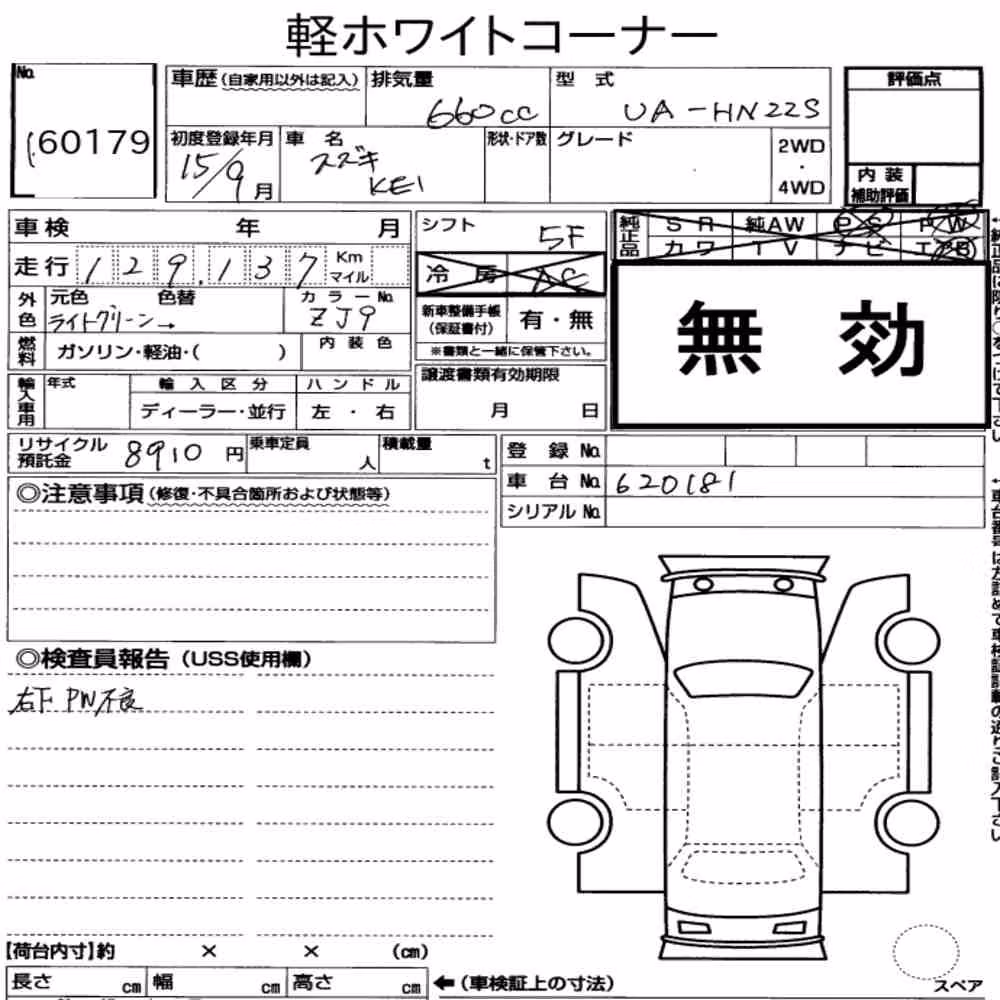 軽ホワイトコーナー
No. 60179
車歴(自家用以外は記入) 排気量 660cc 型式 UA-HN22S 評価点
初度登録年月 15/9月 車名 スズキ KEI 形状・ドア数 グレード 2WD・4WD
内装補助評価
車検 年 月 シフト 5F 純正品 SR 純AW PS PW
走行 129,137 Km マイル 冷房 AC カワ TV ナビ エアB
外色 元色 色替 カラーNo. ライトグリーン→ ZJ9 新車整備手帳(保証書付) 有・無
無効
燃料 ガソリン・軽油・( ) 内装色 ※書類と一緒に保管下さい。
輸入車用 年式 輸入区分 ハンドル 譲渡書類有効期限
ディーラー・並行 左・右 月 日
リサイクル預託金 8910円 乗車定員 人 積載量 t 登録No.
車台No. 620181
シリアルNo.
◎注意事項(修復・不具合箇所および状態等)
◎検査員報告(USS使用欄)
右下 PW不良
【荷台内寸】約 × × (cm)
長さ cm 幅 cm 高さ cm ←(車検証上の寸法)
スペア